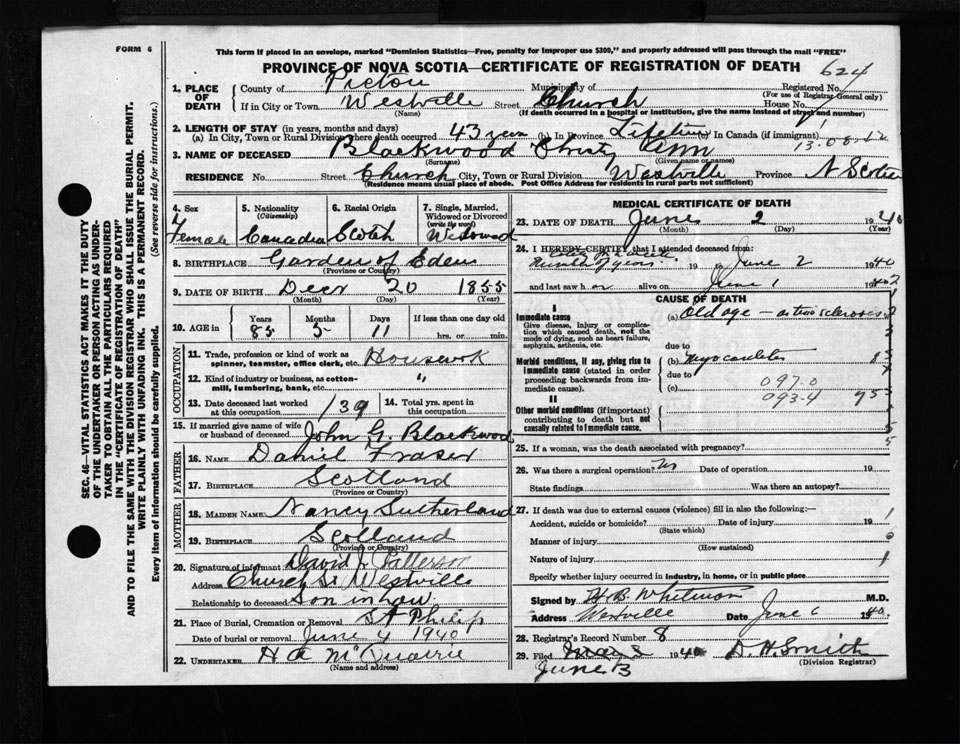 FORM 6
This form if placed in an envelope, marked "Dominion Statistics—Free, penalty for improper use $300," and properly addressed will pass through the mail "FREE"
PROVINCE OF NOVA SCOTIA—CERTIFICATE OF REGISTRATION OF DEATH
624
1. PLACE OF DEATH
County of Pictou Municipality of Registered No.
(For use of Registrar-General only)
If in City or Town Westville Street Church House No.
(Name) (If death occurred in a hospital or institution, give the name instead of street and number)
2. LENGTH OF STAY (in years, months and days)
(a) In City, Town or Rural Division where death occurred 43 years (b) In Province Lifetime In Canada (if immigrant)
3. NAME OF DECEASED Blackwood Christy Ann
(Surname) (Given name or names)
RESIDENCE No. Street Church City, Town or Rural Division Westville Province N Scotia
(Residence means usual place of abode. Post Office Address for residents in rural parts not sufficient)
4. Sex Female
5. Nationality (Citizenship) Canadian
6. Racial Origin Scotch
7. Single, Married, Widowed or Divorced (write the word) Widowed
8. BIRTHPLACE Garden of Eden
(Province or Country)
9. DATE OF BIRTH Decr 20 1855
(Month) (Day) (Year)
10. AGE in Years Months Days If less than one day old
85 5 11 hrs. or min.
OCCUPATION
11. Trade, profession or kind of work as spinner, teamster, office clerk, etc. Housework
12. Kind of industry or business, as cotton-mill, lumbering, bank, etc. "
13. Date deceased last worked at this occupation 139
14. Total yrs. spent in this occupation
15. If married give name of wife or husband of deceased John G. Blackwood
FATHER
16. NAME Daniel Fraser
17. BIRTHPLACE Scotland
(Province or Country)
MOTHER
18. MAIDEN NAME Nancy Sutherland
19. BIRTHPLACE Scotland
(Province or Country)
20. Signature of informant David J Patterson
Address Church St Westville
Relationship to deceased Son in Law
21. Place of Burial, Cremation or Removal St Philip
Date of burial or removal June 4 1940
22. UNDERTAKER H A McQuarrie
(Name and address)
MEDICAL CERTIFICATE OF DEATH
23. DATE OF DEATH June 2 1940
(Month) (Day) (Year)
24. I HEREBY CERTIFY that I attended deceased from:
number of years 19 to June 2 1940
and last saw h er alive on June 1 1940
CAUSE OF DEATH
I
Immediate cause (a) Old age — arterio sclerosis
Give disease, injury or complication which caused death, not the mode of dying, such as heart failure, asphyxia, asthenia, etc.
due to
Morbid conditions, if any, giving rise to immediate cause (stated in order proceeding backwards from immediate cause). (b) Myocarditis
due to
(c)
097.0
093.4
II
Other morbid conditions (if important) contributing to death but not causally related to immediate cause.
25. If a woman, was the death associated with pregnancy?
26. Was there a surgical operation? No Date of operation 19
State findings Was there an autopsy?
27. If death was due to external causes (violence) fill in also the following:—
Accident, suicide or homicide? Date of injury 19
(State which)
Manner of injury
(How sustained)
Nature of injury
Specify whether injury occurred in industry, in home, or in public place
Signed by H B Whitman M.D.
Address Westville Date June 6 1940
28. Registrar's Record Number 8
29. Filed 1940 D. H. Smith
June 3 (Division Registrar)
SEC. 46—VITAL STATISTICS ACT MAKES IT THE DUTY OF THE UNDERTAKER OR PERSON ACTING AS UNDERTAKER TO OBTAIN ALL THE PARTICULARS REQUIRED IN THE "CERTIFICATE OF REGISTRATION OF DEATH"
AND TO FILE THE SAME WITH THE DIVISION REGISTRAR WHO SHALL ISSUE THE BURIAL PERMIT.
WRITE PLAINLY WITH UNFADING INK. THIS IS A PERMANENT RECORD.
Every item of information should be carefully supplied. (See reverse side for instructions.)